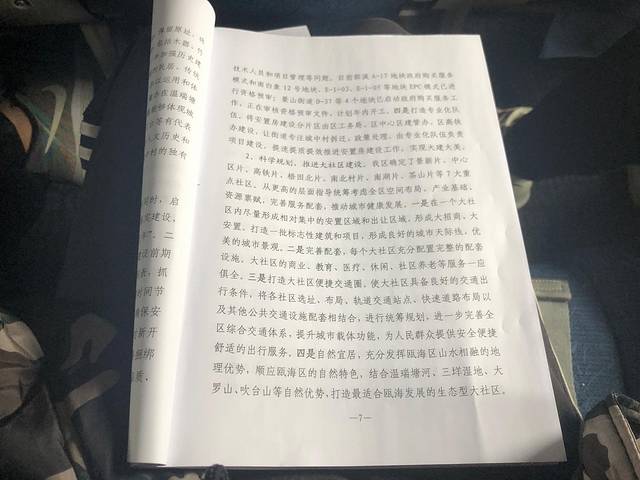 技术人员和项目管理等问题。目前郭溪 A-17 地块政府购买服务
模式和南白象 12 号地块、S-1-03、S-1-05 等地块 EPC 模式已进
行资格预审；景山街道 D-37 等 4 个地块已启动政府购买服务工
作，正在审核资格预审文件，计划年内开工。四是打造专业化队
伍。将安置房建设分片区由区工务局、区中心区建管办、区高铁
办建设，让街道专注城中村拆迁、政策处理，由专业化队伍负责
项目建设，提速提质提效推进安置房建设工作，实现大建大美。
2、科学规划，推进大社区建设。我区确定了景新片、中心
区片、高铁片、梧田北片、南北村片、南湖片、茶山片等 7 大重
点社区，从更高的层面指导统筹考虑全区空间布局、产业基础、
资源禀赋，完善服务配套，推动城市健康发展。一是在一个大社
区内尽量形成相对集中的安置区域和出让区域，形成大招商、大
安置，打造一批标志性建筑和项目，形成良好的城市天际线，优
美的城市景观。二是完善配套，每个大社区充分配置完整的配套
设施，大社区的商业、教育、医疗、休闲、社区养老等服务一应
俱全。三是打造大社区便捷交通圈，使大社区具备良好的交通出
行条件，将各社区选址、布局、轨道交通站点、快速道路布局以
及其他公共交通设施配套相结合，进行统筹规划，进一步完善全
区综合交通体系，提升城市载体功能，为人民群众提供安全便捷
舒适的出行服务。四是自然宜居，充分发挥瓯海区山水相融的地
理优势，顺应瓯海区的自然特色，结合温瑞塘河、三垟湿地、大
罗山、吹台山等自然优势，打造最适合瓯海发展的生态型大社区。
—7—